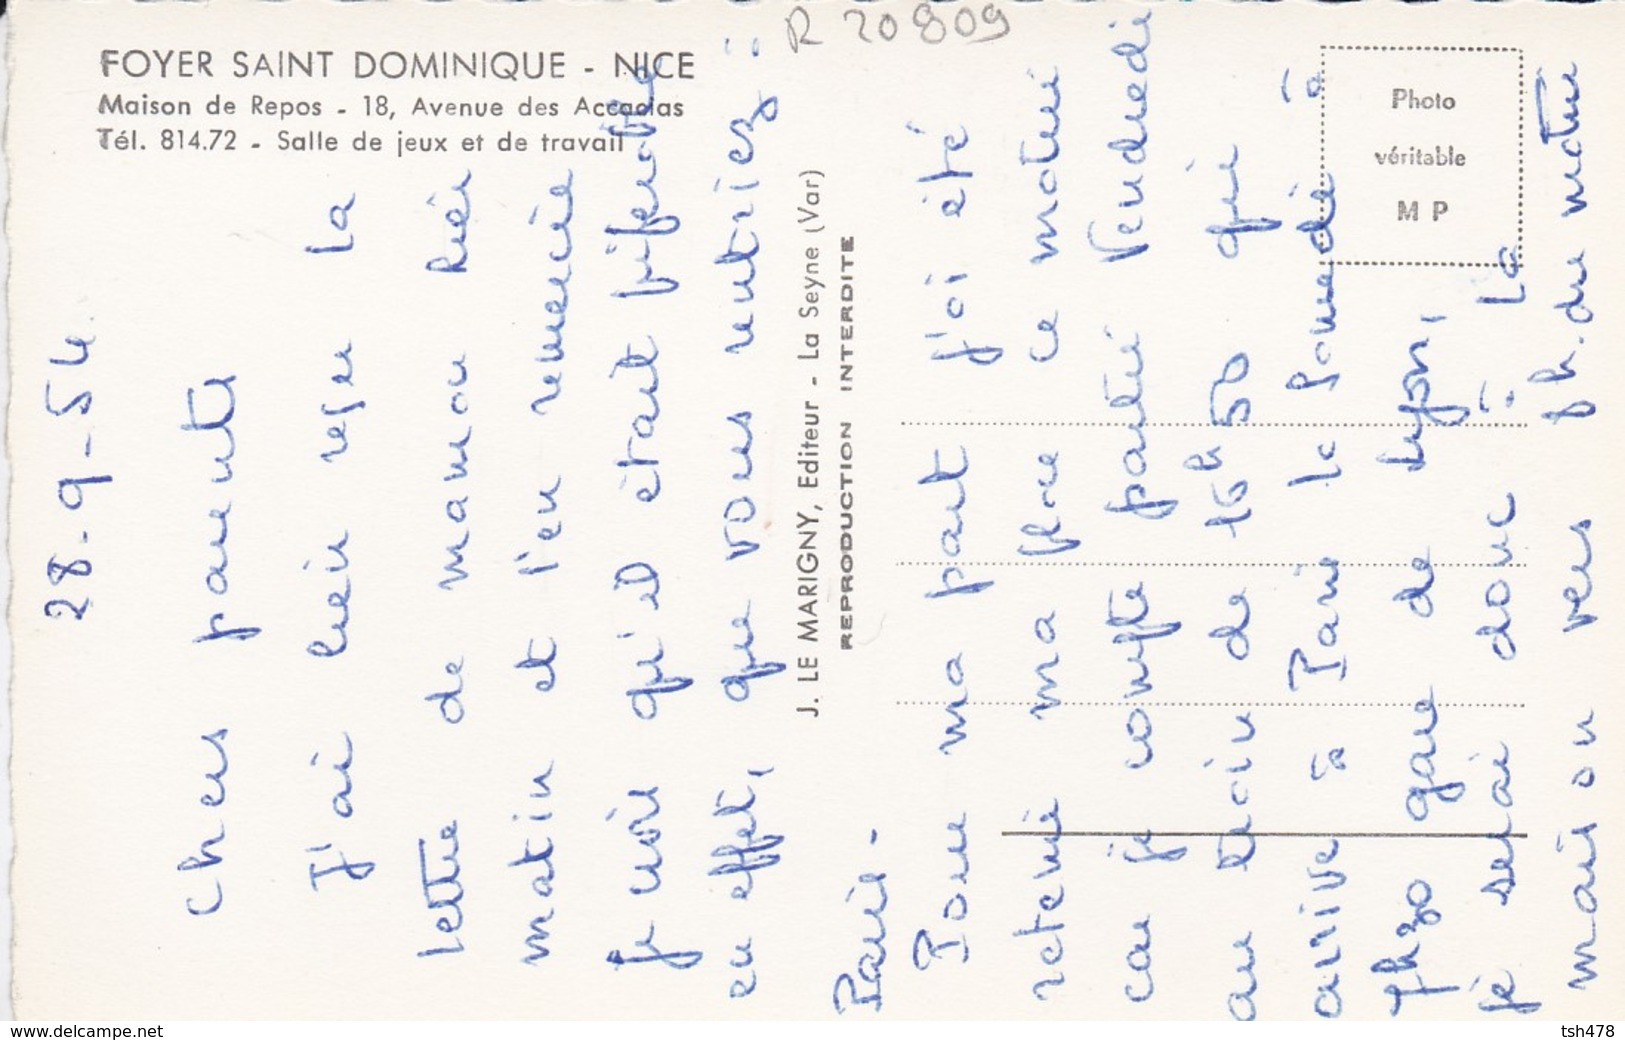 FOYER SAINT DOMINIQUE - NICE
Maison de Repos - 18, Avenue des Accacias
Tél. 814.72 - Salle de jeux et de travail
R 20809
Photo
véritable
M P
J. LE MARIGNY, Editeur - La Seyne (Var)
REPRODUCTION INTERDITE
28-9-54
Chers parents
J'ai bien reçu la
lettre de maman hier
matin et l'en remercie
Je crois qu'il était préférable
en effet, que vous rentriez à
Paris -
Pour ma part j'ai été
retenir ma place ce matin
car je compte partir Vendredi
au train de 16h 50 qui
arrive à Paris le Samedi à
7h30 gare de Lyon,
je serai donc à la
maison vers 8h. du matin
www.delcampe.net
tsh478